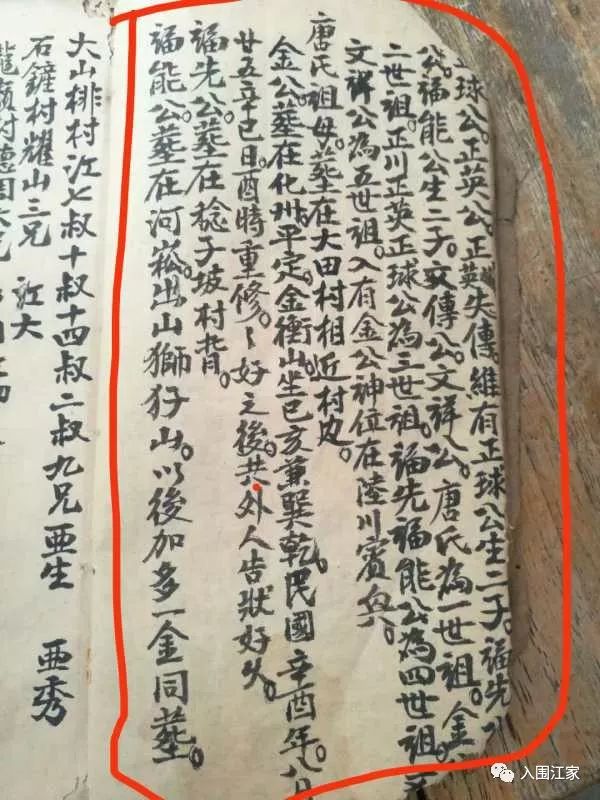 球公。正英公。正英失傳維有正球公生二子。福先
福能公生二子。文傳公。文祥公。唐氏為一世祖。金
二世祖。正川正英正球公為三世祖。福先福能公為四世祖。文
文祥公為五世祖。入有金公神位在陸川賓
唐氏祖母。墓在大田村相近村边。
金公。墓在化州平定。金衝山坐巳亥兼巽乾。民國辛酉年。八月
廿五辛巳日。酉時重修。〻好之後。共外人告狀好久。
福先公。墓在稔子坡村背。
福能公。墓在河崧出山獅犲山。以後加多一金同墓。
大山排村江七叔十叔十四叔二叔九兄亜生 亜秀
石鏟村耀山三兄 江大
入围江家